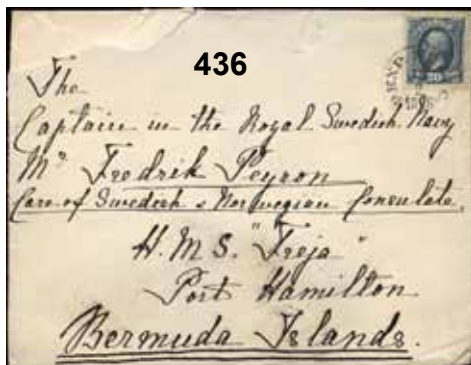 436
The
Captain in the Royal Swedish Navy
Mr Fredrik Peyron
Care of Swedish & Norwegian Consulate.
H.M.S. "Freja"
Port Hamilton
Bermuda Islands.